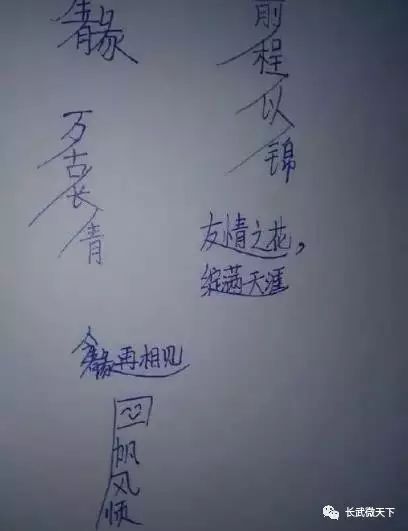 前程以锦
万古长青
友情之花，
绽满天涯
再相见
帆风顺
长武微天下